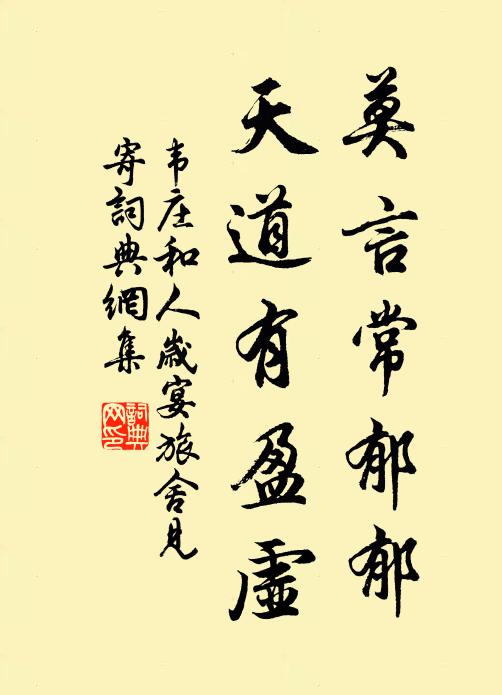 莫言常郁郁
天道有盈虚
韦庄和人岁宴旅舍见
寄词典網集
詞典网印